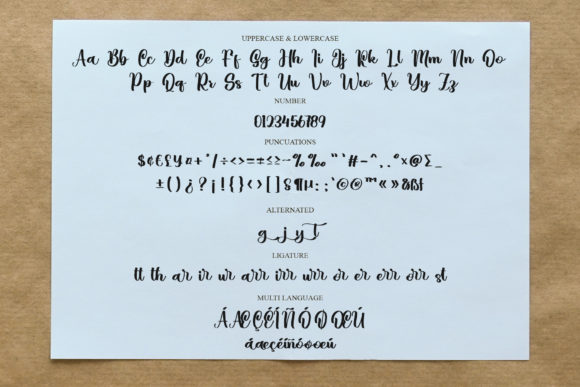 UPPERCASE & LOWERCASE
Aa Bb Cc Dd Ee Ff Gg Hh Ii Jj Kk Ll Mm Nn Oo
Pp Qq Rr Ss Tt Uu Vv Ww Xx Yy Zz
NUMBER
0123456789
PUNCUATIONS
$¢€£¥¤+*/÷<>=±≤≥~%‰"'#-^,.°×@Σ_
±()¿?¡!{}‹›[]§¶µ:;'©®™«»&ßf
ALTERNATED
g j y T
LIGATURE
tt th ar ir ur arr irr urr or er err orr st
MULTI LANGUAGE
ÁÆÇÉÍÑÓØŒÚ
áæçéíñóøœú